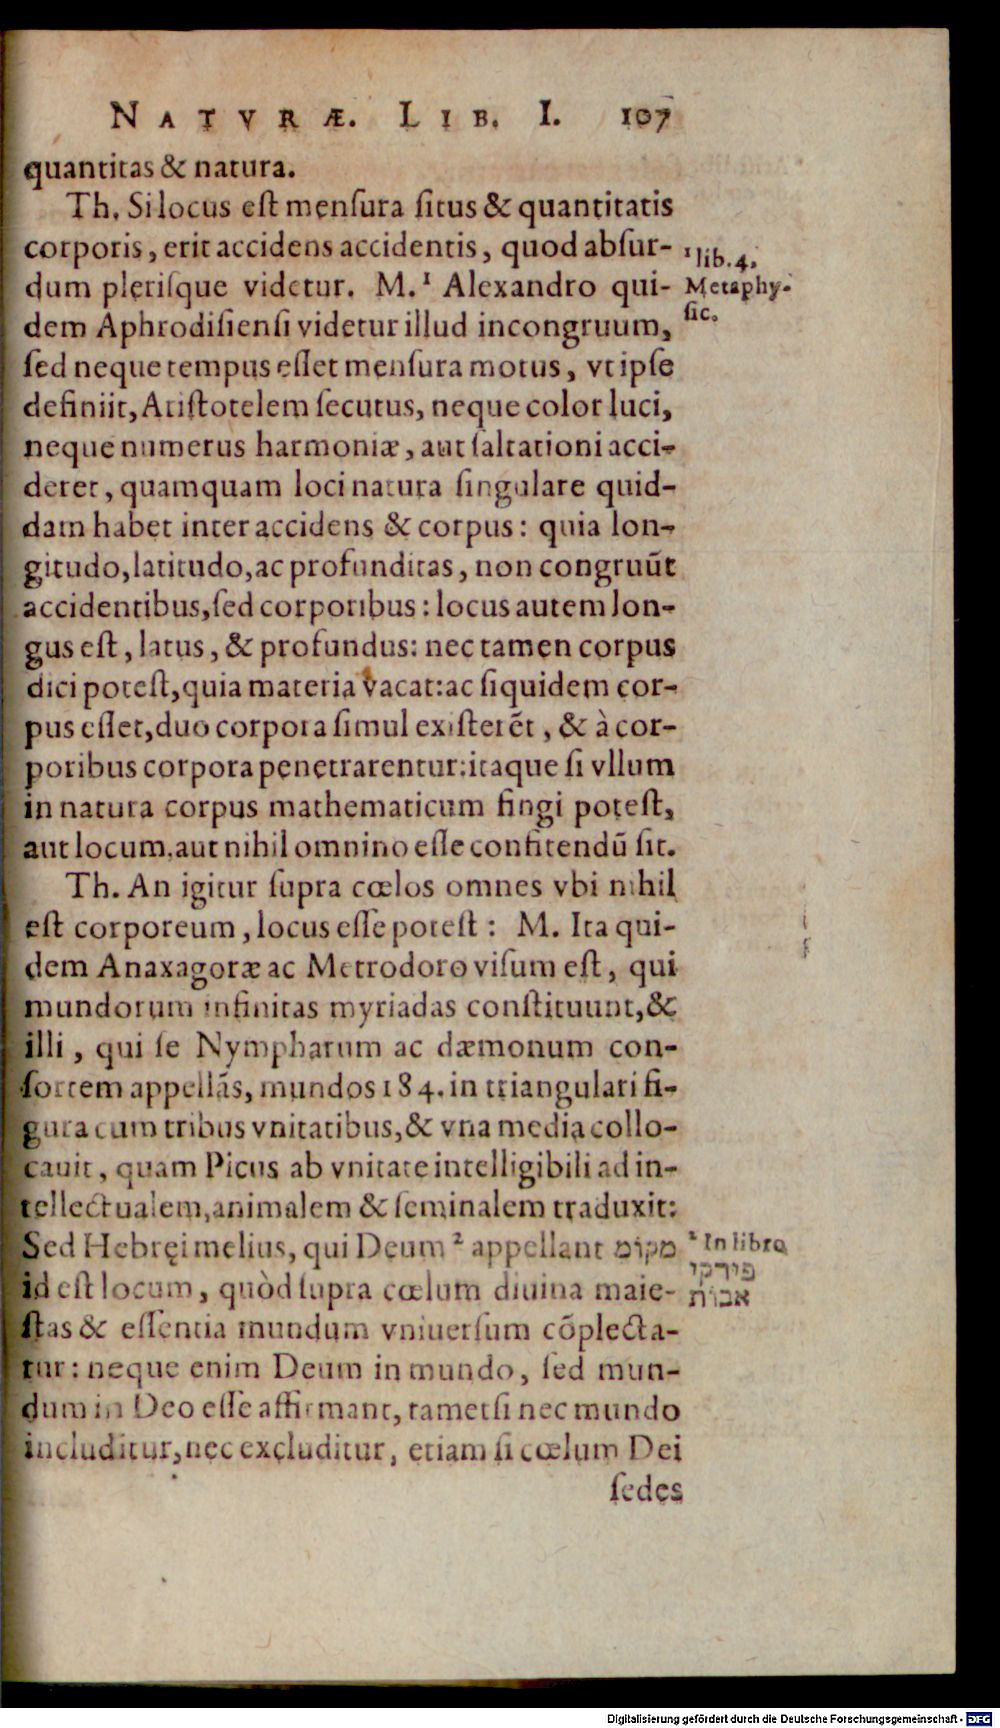 NATVRÆ. LIB. I. 107
quantitas & natura.
Th. Si locus est mensura situs & quantitatis
corporis, erit accidens accidentis, quod absur-
dum plerisque videtur. M.¹ Alexandro qui-
dem Aphrodisiensi videtur illud incongruum,
sed neque tempus esset mensura motus, vt ipse
definiit, Aristotelem secutus, neque color luci,
neque numerus harmoniæ, aut saltationi acci-
deret, quamquam loci natura singulare quid-
dam habet inter accidens & corpus: quia lon-
gitudo, latitudo, ac profunditas, non congruūt
accidentibus, sed corporibus: locus autem lon-
gus est, latus, & profundus: nec tamen corpus
dici potest, quia materia vacat: ac siquidem cor-
pus esset, duo corpora simul existerēt, & à cor-
poribus corpora penetrarentur: itaque si vllum
in natura corpus mathematicum fingi potest,
aut locum, aut nihil omnino esse confitendū sit.
Th. An igitur supra cœlos omnes vbi nihil
est corporeum, locus esse potest: M. Ita qui-
dem Anaxagoræ ac Metrodoro visum est, qui
mundorum infinitas myriadas constituunt, &
illi, qui se Nympharum ac dæmonum con-
sortem appellās, mundos 184. in triangulari fi-
gura cum tribus vnitatibus, & vna media collo-
cauit, quam Picus ab vnitate intelligibili ad in-
tellectualem, animalem & seminalem traduxit:
Sed Hebręi melius, qui Deum ² appellant מקום
id est locum, quòd supra cœlum diuina maie-
stas & essentia mundum vniuersum cōplecta-
tur: neque enim Deum in mundo, sed mun-
dum in Deo esse affirmant, tametsi nec mundo
includitur, nec excluditur, etiam si cœlum Dei
sedes
¹ lib. 4.
Metaphy-
sic.
² In libro
פירקי
אבות
Digitalisierung gefördert durch die Deutsche Forschungsgemeinschaft - DFG